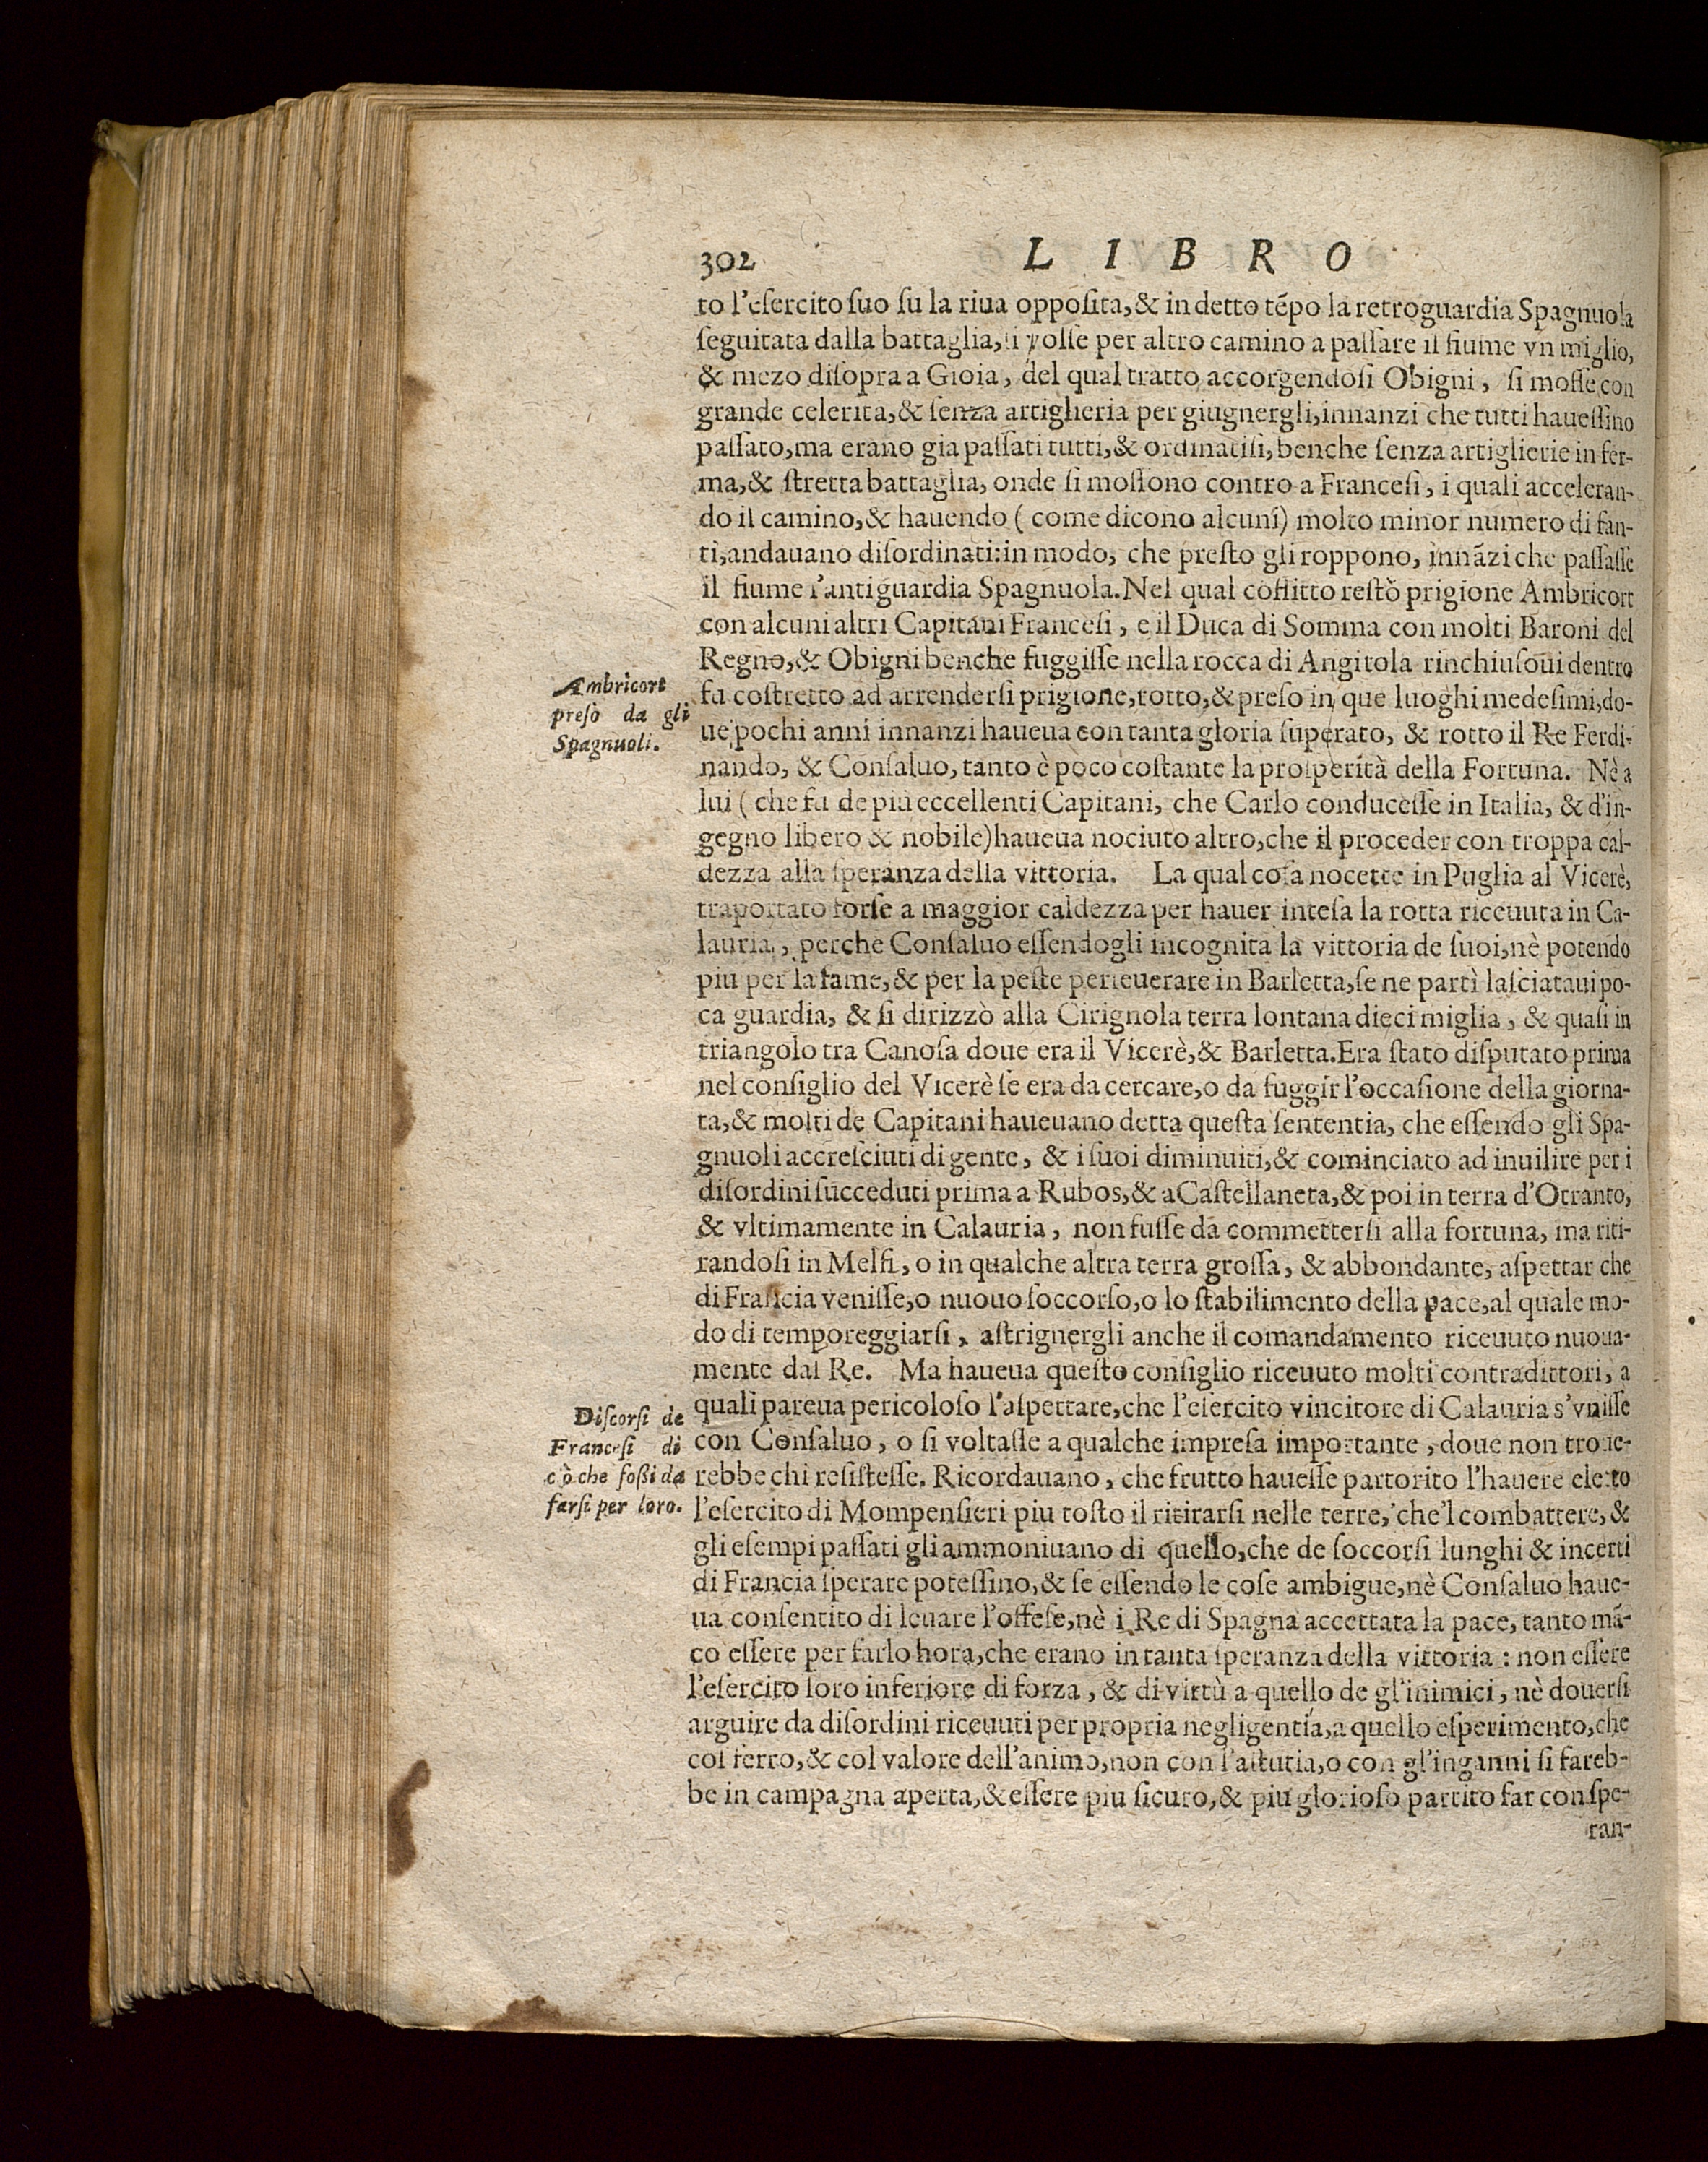 302 LIBRO
to l'eſercito ſuo ſu la riua oppoſita, & in detto tẽpo la retroguardia Spagnuola
ſeguitata dalla battaglia, ſi volſe per altro camino a paſſare il fiume vn miglio,
& mezo diſopra a Gioia, del qual tratto accorgendoſi Obigni, ſi moſſe con
grande celerita, & ſenza artiglieria per giugnergli, innanzi che tutti haueſſino
paſſato, ma erano gia paſſati tutti, & ordinatiſi, benche ſenza artiglierie in fer-
ma, & ſtretta battaglia, onde ſi moſſono contro a Franceſi, i quali acceleran-
do il camino, & hauendo (come dicono alcuni) molto minor numero di fan-
ti, andauano diſordinati: in modo, che preſto gli roppono, innãzi che paſſaſſe
il fiume l'antiguardia Spagnuola. Nel qual cõflitto reſtò prigione Ambricort
con alcuni altri Capitani Franceſi, e il Duca di Somma con molti Baroni del
Regno, & Obigni benche fuggiſſe nella rocca di Angitola rinchiuſoui dentro
fu coſtretto ad arrenderſi prigione, rotto, & preſo in que luoghi medeſimi, do-
ue pochi anni innanzi haueua con tanta gloria ſuperato, & rotto il Re Ferdi-
nando, & Conſaluo, tanto è poco coſtante la proſperità della Fortuna. Nè a
lui (che fu de piu eccellenti Capitani, che Carlo conduceſſe in Italia, & d'in-
gegno libero & nobile) haueua nociuto altro, che il proceder con troppa cal-
dezza alla ſperanza della vittoria. La qual coſa nocette in Puglia al Vicerè,
traportato forſe a maggior caldezza per hauer inteſa la rotta riceuuta in Ca-
lauria, perche Conſaluo eſſendogli incognita la vittoria de ſuoi, nè potendo
piu per la fame, & per la peſte perſeuerare in Barletta, ſe ne partì laſciataui po-
ca guardia, & ſi dirizzò alla Cirignola terra lontana dieci miglia, & quaſi in
triangolo tra Canoſa doue era il Vicerè, & Barletta. Era ſtato diſputato prima
nel conſiglio del Vicerè ſe era da cercare, o da fuggir l'occaſione della giorna-
ta, & molti de Capitani haueuano detta queſta ſententia, che eſſendo gli Spa-
gnuoli accreſciuti di gente, & i ſuoi diminuiti, & cominciato ad inuilire per i
diſordini ſucceduti prima a Rubos, & a Caſtellaneta, & poi in terra d'Otranto,
& vltimamente in Calauria, non fuſſe da commetterſi alla fortuna, ma riti-
randoſi in Melfi, o in qualche altra terra groſſa, & abbondante, aſpettar che
di Francia veniſſe, o nuouo ſoccorſo, o lo ſtabilimento della pace, al quale mo-
do di temporeggiarſi, aſtrignergli anche il comandamento riceuuto nuoua-
mente dal Re. Ma haueua queſto conſiglio riceuuto molti contradittori, a
quali pareua pericoloſo l'aſpettare, che l'eſercito vincitore di Calauria s'vniſſe
con Conſaluo, o ſi voltaſſe a qualche impreſa importante, doue non troue-
rebbe chi reſiſteſſe. Ricordauano, che frutto haueſſe partorito l'hauere eletto
l'eſercito di Mompenſieri piu toſto il ritirarſi nelle terre, che'l combattere, &
gli eſempi paſſati gli ammoniuano di quello, che de ſoccorſi lunghi & incerti
di Francia ſperare poteſſino, & ſe eſſendo le coſe ambigue, nè Conſaluo haue-
ua conſentito di leuare l'offeſe, nè i Re di Spagna accettata la pace, tanto mã-
co eſſere per farlo hora, che erano in tanta ſperanza della vittoria: non eſſere
l'eſercito loro inferiore di forza, & di virtù a quello de gl'inimici, nè douerſi
arguire da diſordini riceuuti per propria negligentia, a quello eſperimento, che
col ferro, & col valore dell'animo, non con l'aſtutia, o con gl'inganni ſi fareb-
be in campagna aperta, & eſſere piu ſicuro, & piu glorioſo partito far con ſpe-
ran-
Ambricort
preſo da gli
Spagnuoli.
Diſcorſi de
Franceſi di
cò che foſſi da
farſi per loro.